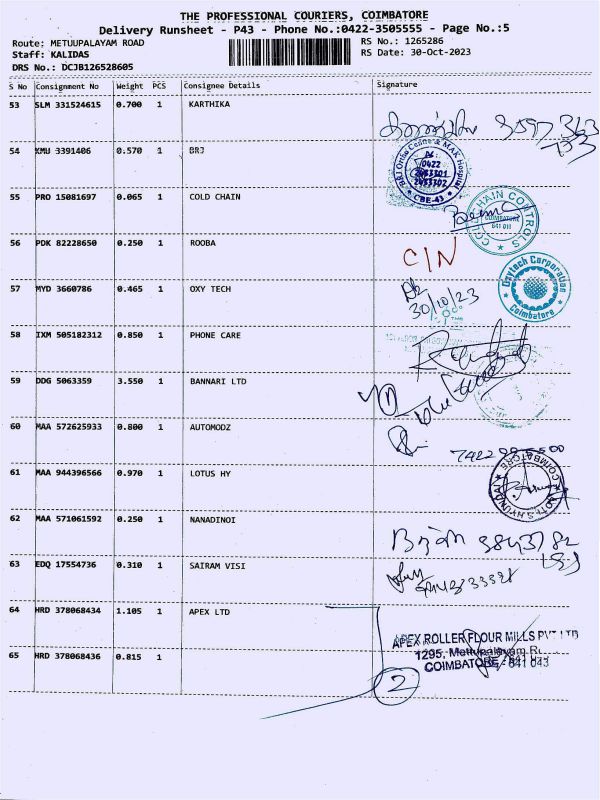 THE PROFESSIONAL COURIERS, COIMBATORE
Delivery Runsheet - P43 - Phone No.:0422-3505555 - Page No.:5
Route: METUUPALAYAM ROAD RS No.: 1265286
Staff: KALIDAS RS Date: 30-Oct-2023
DRS No.: DCJB126528605
S No Consignment No Weight PCS Consignee Details Signature
53 SLM 331524615 0.700 1 KARTHIKA
54 KMU 3391406 0.570 1 BRJ
0422
CBE-43
55 PRO 15081697 0.065 1 COLD CHAIN
COLD CHAIN CONTROLS
COIMBATORE
641 011
56 PDK 82228650 0.250 1 ROOBA
C/N
57 MYD 3660786 0.465 1 OXY TECH
30/10/23
Oxytech Corporation
Coimbatore
58 IXM 505182312 0.850 1 PHONE CARE
59 DDG 5063359 3.550 1 BANNARI LTD
60 MAA 572625933 0.800 1 AUTOMODZ
61 MAA 944396566 0.970 1 LOTUS HY
COIMBATORE
62 MAA 571061592 0.250 1 NANADINOI
63 EDQ 17554736 0.310 1 SAIRAM VISI
64 HRD 378068434 1.105 1 APEX LTD
APEX ROLLER FLOUR MILLS PVT LTD
1295, Mettupalayam R
COIMBATORE - 641 043
65 HRD 378068436 0.815 1
2